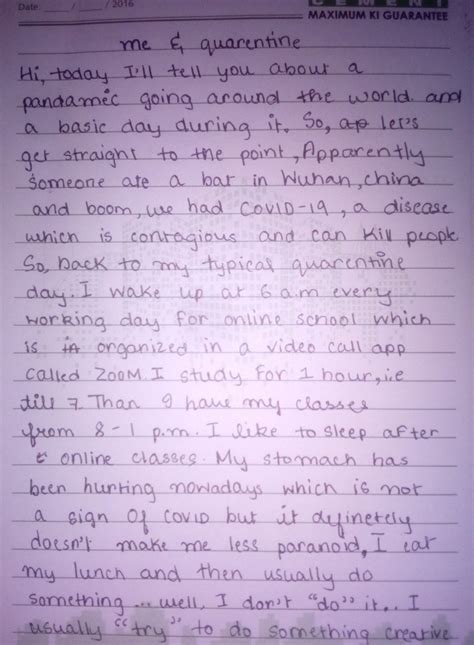 Date / / 2016
CEMENT
MAXIMUM KI GUARANTEE
me & quarentine
Hi, today I'll tell you about a
pandamec going around the world. and
a basic day during it. So, let's
get straight to the point, Apparently
someone ate a bat in Wuhan, china
and boom, we had COVID-19, a disease
which is contagious and can kill people
So, back to my typical quarentine
day. I wake up at 6 a.m every
working day for online school which
is organized in a video call app
called ZOOM. I study for 1 hour, i.e
till 7. Than I have my classes
from 8-1 p.m. I like to sleep after
online classes. My stomach has
been hurting nowadays which is not
a sign of COVID but it definetely
doesn't make me less paranoid, I eat
my lunch and then usually do
something... well, I don't "do" it.. I
usually "try" to do something creative